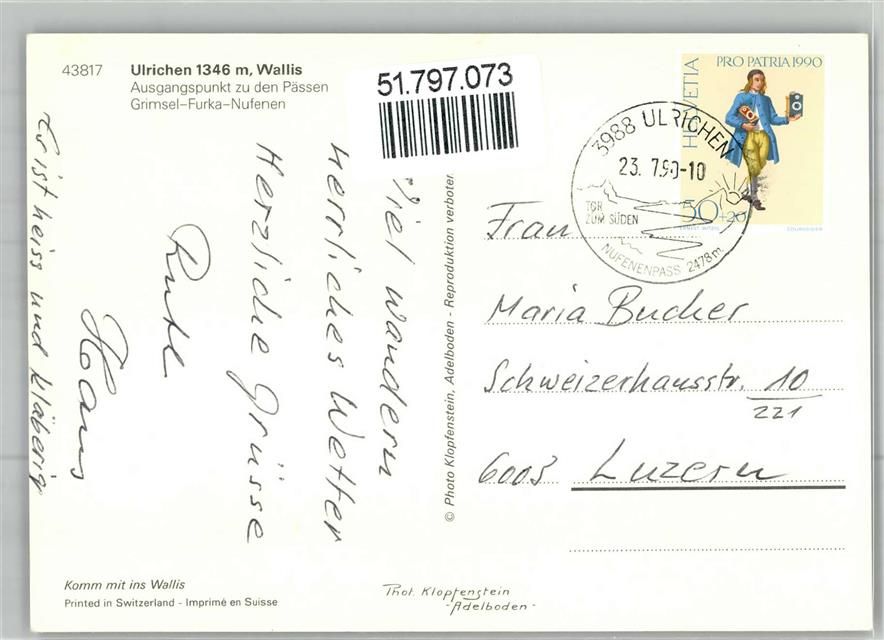 43817 Ulrichen 1346 m, Wallis
Ausgangspunkt zu den Pässen
Grimsel–Furka–Nufenen
51.797.073
HELVETIA
PRO PATRIA 1990
50+20
3988 ULRICHEN
23. 7.90-10
TOR
ZUM SÜDEN
NUFENENPASS 2478m
Viel wandern
herrliches Wetter
Herzliche Grüsse
Ruth
Hans
Es ist heiss und kläberig
© Photo Klopfenstein, Adelboden - Reproduktion verboten
Frau
Maria Bucher
Schweizerhausstr. 10
221
6003 Luzern
Komm mit ins Wallis
Printed in Switzerland - Imprimé en Suisse
Phot. Klopfenstein
-Adelboden-